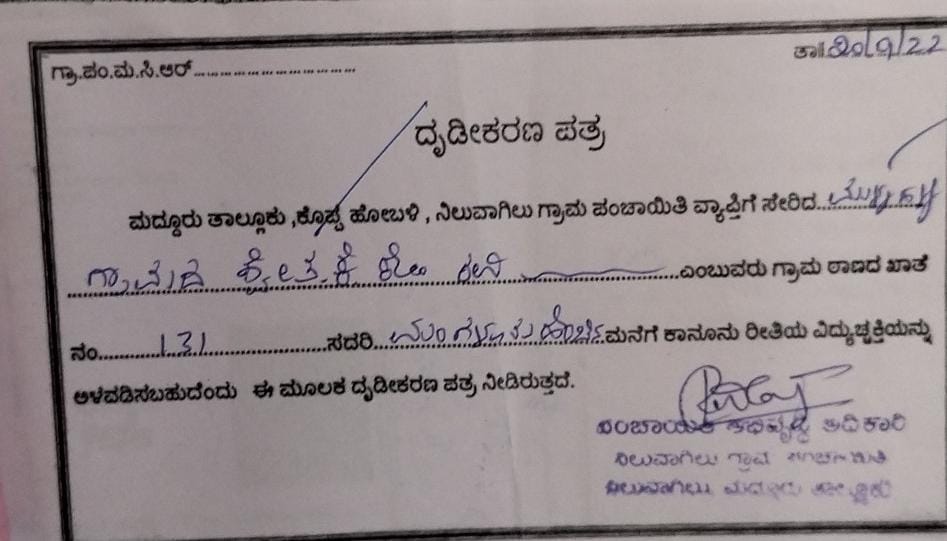 ತಾ॥ 20/9/22
ಗ್ರಾ.ಪಂ.ಮ.ಸಿ.ಆರ್..............................
ದೃಡೀಕರಣ ಪತ್ರ
ಮದ್ದೂರು ತಾಲ್ಲೂಕು ,ಕೊಪ್ಪ ಹೋಬಳಿ , ನಿಲುವಾಗಿಲು ಗ್ರಾಮ ಪಂಚಾಯಿತಿ ವ್ಯಾಪ್ತಿಗೆ ಸೇರಿದ
ಗ್ರಾಮದ ಎಂಬುವರು ಗ್ರಾಮ ಠಾಣದ ಖಾತೆ
ನಂ. 131 ಸದರಿ ಮಂಗಳೂರು ಹೆಂಚಿನ ಮನೆಗೆ ಕಾನೂನು ರೀತಿಯ ವಿದ್ಯುಚ್ಛಕ್ತಿಯನ್ನು
ಅಳವಡಿಸಬಹುದೆಂದು ಈ ಮೂಲಕ ದೃಡೀಕರಣ ಪತ್ರ ನೀಡಿರುತ್ತದೆ.
ಪಂಚಾಯಿತಿ ಅಭಿವೃದ್ಧಿ ಅಧಿಕಾರಿ
ನಿಲುವಾಗಿಲು ಗ್ರಾಮ ಪಂಚಾಯಿತಿ
ನಿಲುವಾಗಿಲು ಮದ್ದೂರು ತಾಲ್ಲೂಕು